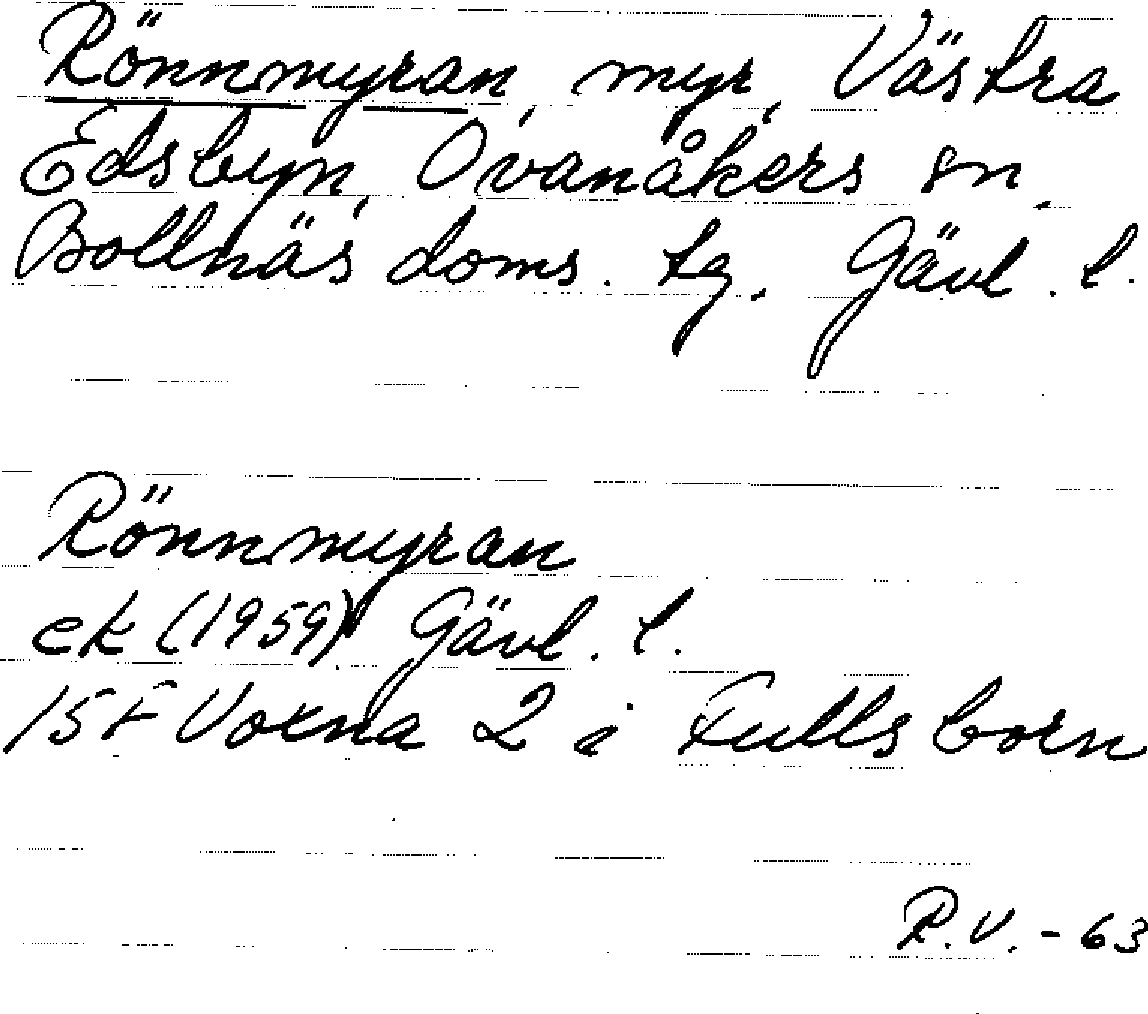 Rönnmyran, myr, Västra
Edsbyn, Ovanåkers sn,
Bollnäs doms. tg. Gävl. l.
Rönnmyran
ek (1959) Gävl. l.
15F Voxna 2 i Fullsborn
R.V. - 63